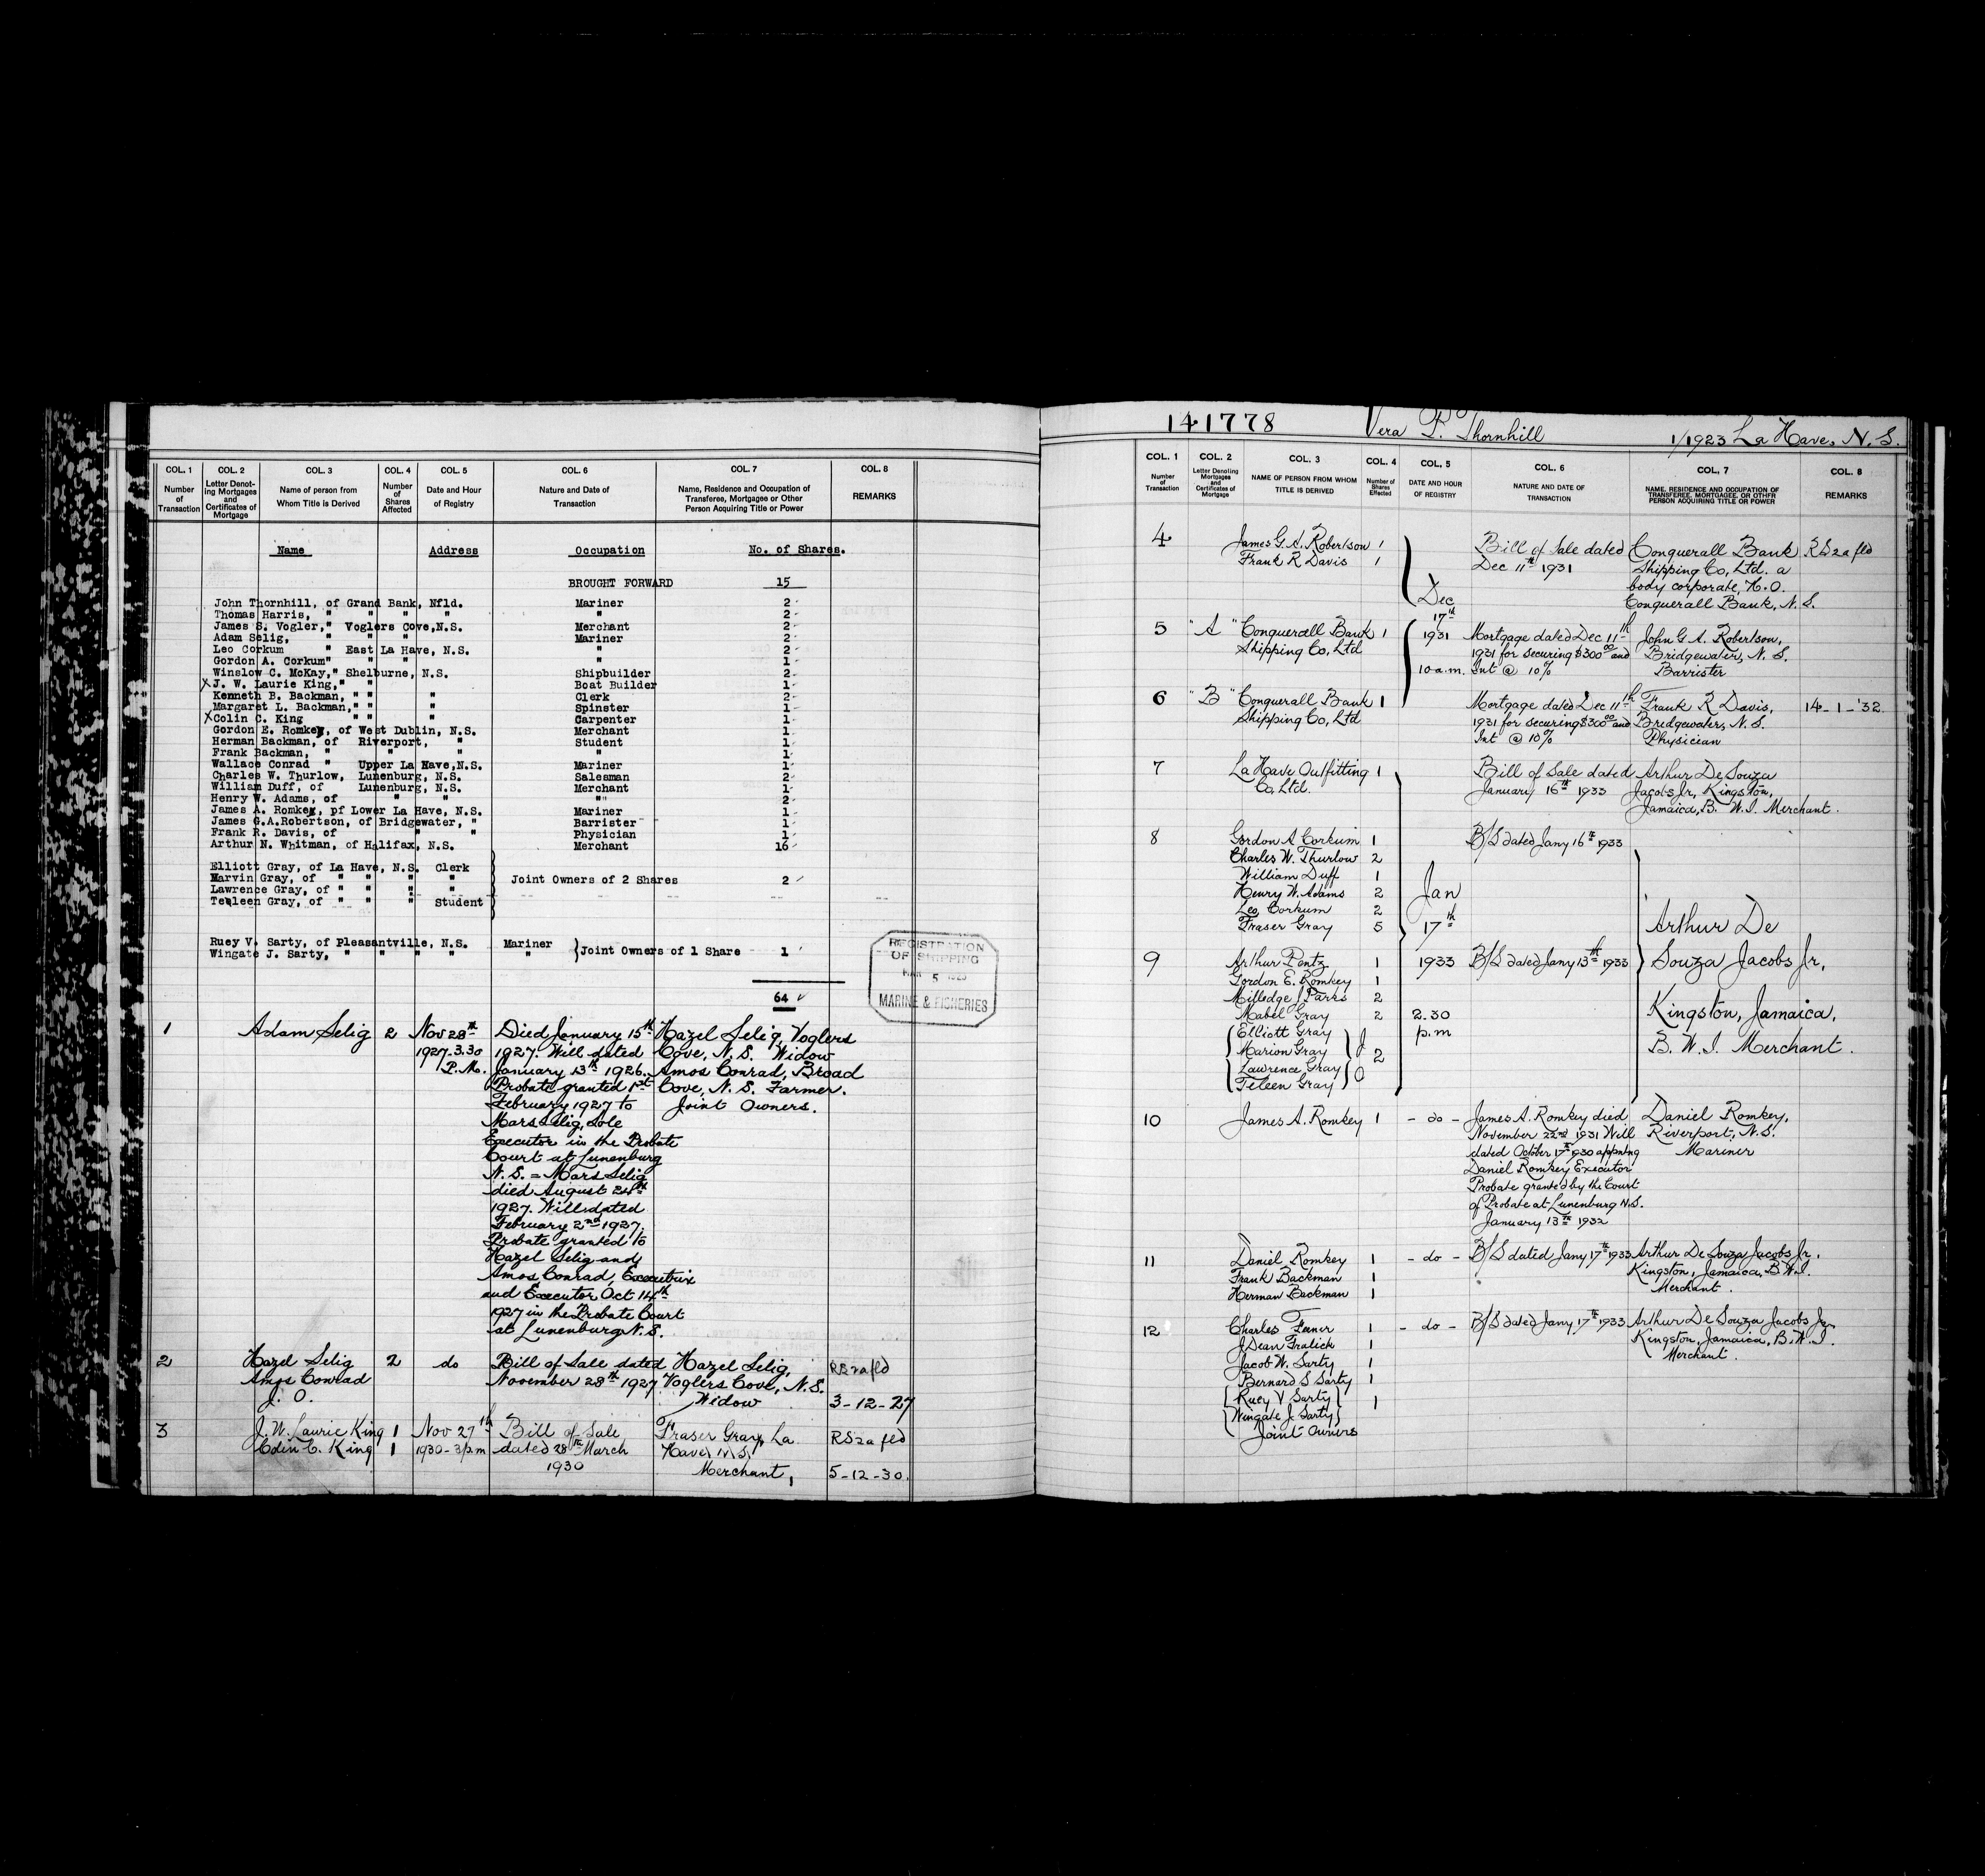 COL. 1 COL. 2 COL. 3 COL. 4 COL. 5 COL. 6 COL. 7 COL. 8
Number of Transaction
Letter Denoting Mortgages and Certificates of Mortgage
Name of person from Whom Title is Derived
Number of Shares Affected
Date and Hour of Registry
Nature and Date of Transaction
Name, Residence and Occupation of Transferee, Mortgagee or Other Person Acquiring Title or Power
REMARKS
Name Address Occupation No. of Shares.
BROUGHT FORWARD 15
John Thornhill, of Grand Bank, Nfld. Mariner 2
Thomas Harris, " " " " " 2
James S. Vogler," Voglers Cove,N.S. Merchant 2
Adam Selig, " " " Mariner 2
Leo Corkum " East La Have, N.S. " 2
Gordon A. Corkum" " " " 1
Winslow C. McKay," Shelburne, N.S. Shipbuilder 2
X J. W. Laurie King," " Boat Builder 1
Kenneth B. Backman, " " " Clerk 2
Margaret L. Backman," " " Spinster 1
X Colin C. King " " " Carpenter 1
Gordon E. Romkey, of West Dublin, N.S. Merchant 1
Herman Backman, of Riverport, " Student 1
Frank Backman, " " " " 1
Wallace Conrad " Upper La Have,N.S. Mariner 1
Charles W. Thurlow, Lunenburg, N.S. Salesman 2
William Duff, of Lunenburg, N.S. Merchant 1
Henry W. Adams, of " " " 2
James A. Romkey, pf Lower La Have, N.S. Mariner 1
James G.A.Robertson, of Bridgewater, " Barrister 1
Frank R. Davis, of " " Physician 1
Arthur N. Whitman, of Halifax, N.S. Merchant 16
Elliott Gray, of La Have, N.S. Clerk
Marvin Gray, of " " " " Joint Owners of 2 Shares 2
Lawrence Gray, of " " " "
Teleen Gray, of " " " Student
Ruey V. Sarty, of Pleasantville, N.S. Mariner
Wingate J. Sarty, " " " " " Joint Owners of 1 Share 1
64
REGISTRATION
OF SHIPPING
MAR 5 1923
MARINE & FISHERIES
1 Adam Selig 2 Nov 28th Died January 15th Hazel Selig, Voglers
1927. 3.30 1927. Will dated Cove, N.S. Widow
P.M. January 13th 1926. Amos Conrad, Broad
Probate granted 1st Cove, N.S. Farmer.
February 1927 to Joint Owners.
Mars Selig, Sole
Executor in the Probate
Court at Lunenburg
N.S. = Mars Selig
died August 24th
1927. Will dated
February 2nd 1927.
Probate granted to
Hazel Selig and
Amos Conrad, Executrix
and Executor Oct 14th
1927 in the Probate Court
at Lunenburg N.S.
2 Hazel Selig 2 do Bill of Sale dated Hazel Selig, RS2a fld
Amos Conrad November 28th 1927 Voglers Cove, N.S.
J. O. Widow 3-12-27
3 J. W. Laurie King 1 Nov 27th Bill of Sale Fraser Gray, La RS2a fld
Colin C. King 1 1930-3 p.m dated 28th March Have, N.S.
1930 Merchant, 5-12-30.
141778 Vera P. Thornhill 1/1923 La Have, N.S.
COL. 1 COL. 2 COL. 3 COL. 4 COL. 5 COL. 6 COL. 7 COL. 8
Number of Transaction
Letter Denoting Mortgages and Certificates of Mortgage
NAME OF PERSON FROM WHOM TITLE IS DERIVED
Number of Shares Effected
DATE AND HOUR OF REGISTRY
NATURE AND DATE OF TRANSACTION
NAME, RESIDENCE AND OCCUPATION OF TRANSFEREE, MORTGAGEE, OR OTHER PERSON ACQUIRING TITLE OR POWER
REMARKS
4 James G. A. Robertson 1 Bill of Sale dated Conquerall Bank RS2a fld
Frank R Davis 1 Dec 11th 1931 Shipping Co, Ltd. a
body corporate, H.O.
Dec Conquerall Bank, N.S.
17th
5 "A" Conquerall Bank 1 1931 Mortgage dated Dec 11th John G A. Robertson,
Shipping Co, Ltd 1931 for securing $300.00 and Bridgewater, N.S.
10 a.m. Int @ 10% Barrister
6 "B" Conquerall Bank 1 Mortgage dated Dec 11th Frank R Davis, 14-1-'32.
Shipping Co, Ltd 1931 for securing $300.00 and Bridgewater, N.S.
Int @ 10% Physician
7 La Have Outfitting 1 Bill of Sale dated Arthur De Souza
Co, Ltd. January 16th 1933 Jacobs Jr, Kingston,
Jamaica, B. W.I. Merchant.
8 Gordon A Corkum 1 B/S dated Jany 16th 1933
Charles W. Thurlow 2
William Duff 1
Henry W. Adams 2 Jan
Leo Corkum 2
Fraser Gray 5 17th Arthur De
9 Arthur Pentz 1 1933 B/S dated Jany 13th 1933 Souza Jacobs Jr,
Gordon E. Romkey 1
Milledge J Parks 2
Mabel Gray 2 2.30 Kingston, Jamaica,
Elliott Gray p.m
Marion Gray J 2 B. W. I. Merchant.
Lawrence Gray O
Teleen Gray
10 James A. Romkey 1 - do - James A. Romkey died Daniel Romkey,
November 22nd 1931 Will Riverport, N.S.
dated October 17th 1930 appntng Mariner
Daniel Romkey Executor
Probate granted by the Court
of Probate at Lunenburg N.S.
January 13th 1932
11 Daniel Romkey 1 - do - B/S dated Jany 17th 1933 Arthur De Souza Jacobs Jr.
Frank Backman 1 Kingston, Jamaica, B.W.I.
Herman Backman 1 Merchant.
12 Charles 1 - do - B/S dated Jany 17th 1933 Arthur De Souza Jacobs Jr
J Dean Fralick 1 Kingston, Jamaica, B.W.I
Jacob W. Sarty 1 Merchant.
Bernard S Sarty 1
Ruey V Sarty
Wingate J. Sarty 1
Joint Owners